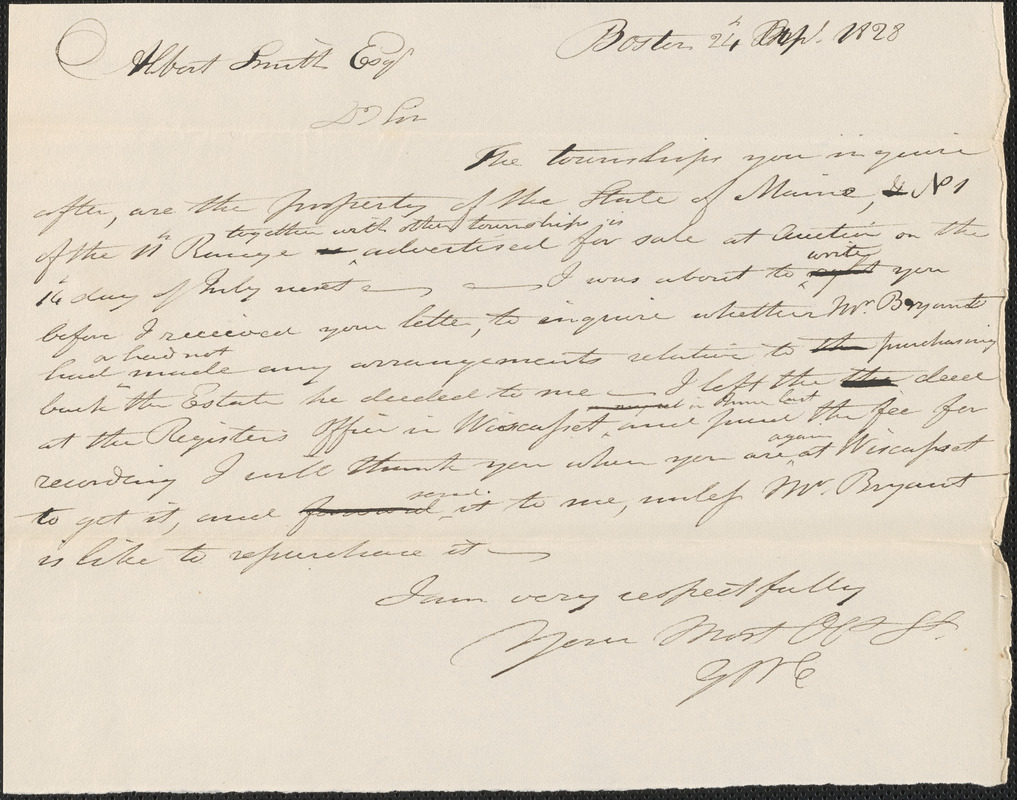 Boston 24th Apl. 1828
Albert Smith Esq
Dr Sir
The townships you inquire
after, are the property of the State of Maine, & No 1
together with other townships is
of the 11th Range advertised for sale at Auction on the
write
14 day of July next — I was about to you
before I received your letter, to inquire whether Mr. Bryant
or had not
had made any arrangements relative to the purchasing
back the Estate he deeded to me — I left the the deed
in June last
at the Registers Office in Wiscasset and paid the fee for
again
recording I will thank you when you are at Wiscasset
send
to get it, and forward it to me, unless Mr. Bryant
is like to repurchase it —
I am very respectfully
Your Most Obt St.
GWC